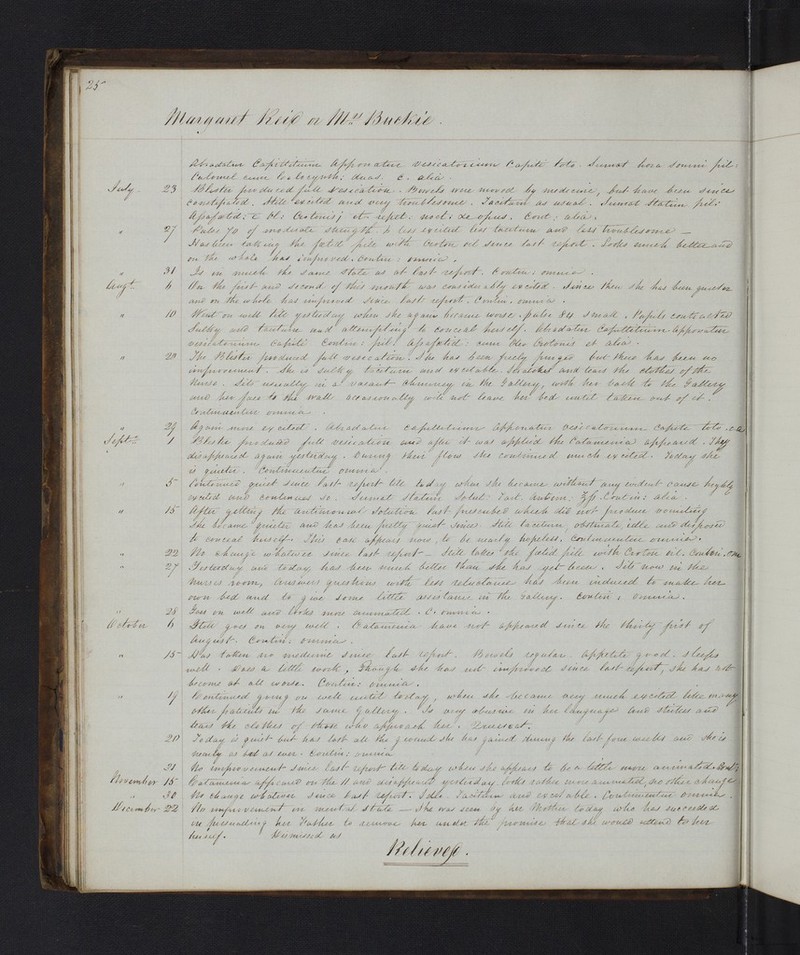 25
Margaret Reid or Mrs Buckie.
Abradatur Capillitium Apponatur vesicatorium Capiti toto. Sumat hora somni pil:
Calomel cum Colocynth: duas. C. alia.
July 23 Blister produced full vesication. Bowels were moved by medicine, but have been since
constipated. Still excited and very troublesome. Taciturn as usual. Sumat statim pil:
Assafœtid: c Ol: Crotonis j et repet. noct: si opus. Cont: alia.
" 27 Pulse 70 of moderate strength is less excited less taciturn and less troublesome —
Has been taking the fœtid pill with Croton oil since last report. Looks much better and
on the whole has improved. Contin: omnia.
" 31 Is in much the same state as at last report. Contin: omnia.
Augt. 6 On the first and second of this month was considerably excited. Since then she has been quieter
and on the whole has improved since last report. Contin. omnia.
" 10 Went on well till yesterday when she again became worse. pulse 84 small. Pupils contracted
Sulky and taciturn and attempting to conceal herself. Abradatur Capillitium Apponatur
vesicatorium capiti Contin: pil: Assafœtid: cum Oleo Crotonis et alia.
" 20 The Blister produced full vesication. She has been freely purged but there has been no
improvement. She is sulky taciturn and excitable. Scratches and tears the clothes of the
Nurse. Sits usually in a vacant chimney in the Gallery, with her back to the Gallery
and her face to the wall occasionally will not leave her bed until taken out of it.
Continuentur omnia.
" 29 Again more excited. Abradatur capillitium Apponatur vesicatorium Capiti toto.
Septr. 1 Blister produced full vesication and after it was applied the Catamenia appeared. They
disappeared again yesterday. During their flow she continued much excited. Today she
is quieter. Continuentur omnia.
" 5 Continued quiet since last report till today when she became without any evident cause highly
excited and continues so. Sumat statim Solut: Tart. Antim: Contin: alia.
" 15 After getting the antimonial solution last prescribed which did not produce vomiting
she became quieter and has been pretty quiet since. Still taciturn, obstinate idle and disposed
to conceal herself. This case appears now, to be nearly hopeless. Continuentur omnia.
" 22 No change whatever since last report – Still takes the fœtid pill with Croton oil. Contin.
" 27 Yesterday and today, has been much better than she has yet been. Sits now in the
nurses room, Answers questions with less reluctance has been induced to make her
own bed and to give some little assistance in the Gallery. Contin; omnia.
" 28 Goes on well and looks more animated. C. omnia.
October 6 Still goes on very well. Catamenia have not appeared since the thirty first of
August. Contin: omnia.
" 15 Has taken no medicine since last report. Bowels regular. Appetite good. Sleeps
well. Does a little work. Though she has not improved since last report, she has not
become at all worse. Contin: omnia.
" 19 Continued going on well until today, when she became very much excited like many
other patients in the same Gallery. Is very obscene in her language and strikes and
tears the clothes of those who approach her.
20 Today is quiet but has lost all the ground she has gained during the last four weeks and she is
nearly as bad as ever. Contin: omnia
31 No improvement since last report till today when she appears to be a little more animated.
November 15 Catamenia appeared on the 11 and disappeared yesterday. looks rather more animated, no other change
" 30 No change whatever since last report. Idle, Taciturn and excitable. Continuentur omnia.
December 22 No improvement in mental state — She was seen by her Mother today who has succeeded
in persuading her Father to remove her under the promise that she would attend to her
herself. Dismissed as
Relieved.